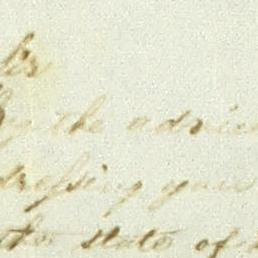 by the advice
dressing your
the state of